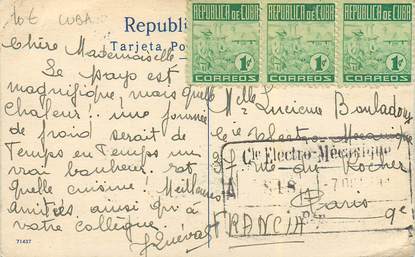 10€ CUBA
Republi
Tarjeta Po
REPUBLICA DE CUBA
1¢
CORREOS
REPUBLICA DE CUBA
1¢
CORREOS
REPUBLICA DE CUBA
1¢
CORREOS
Chère Mademoiselle
Le pays est
magnifique, mais quelle
chaleur!.. une journée
de froid serait de
Temps en Temps un
vrai bonheur. et
quelle cuisine! Meilleures
amitiés ainsi qu'à
votre collègue.
71437
Mlle Lucienne
Cie Electro Mécanique
Cie Electro-Mécanique
37 Rue du Rocher
Paris
FRANCIA